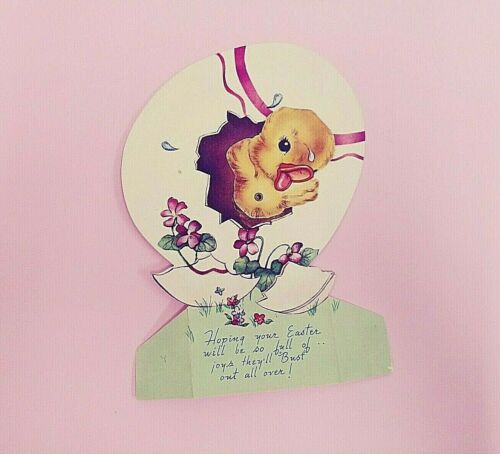 Hoping your Easter
will be so full of..
joys they'll "Bust"
out all over!